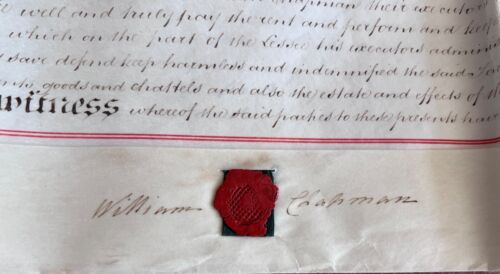 Chapman their executors
well and truly pay the rent and perform and keep
which on the part of the Lessee his executors admin
save defend keep harmless and indemnified the said
goods and chattels and also the estate and effects of
Witness whereof the said parties to these presents have
William Chapman